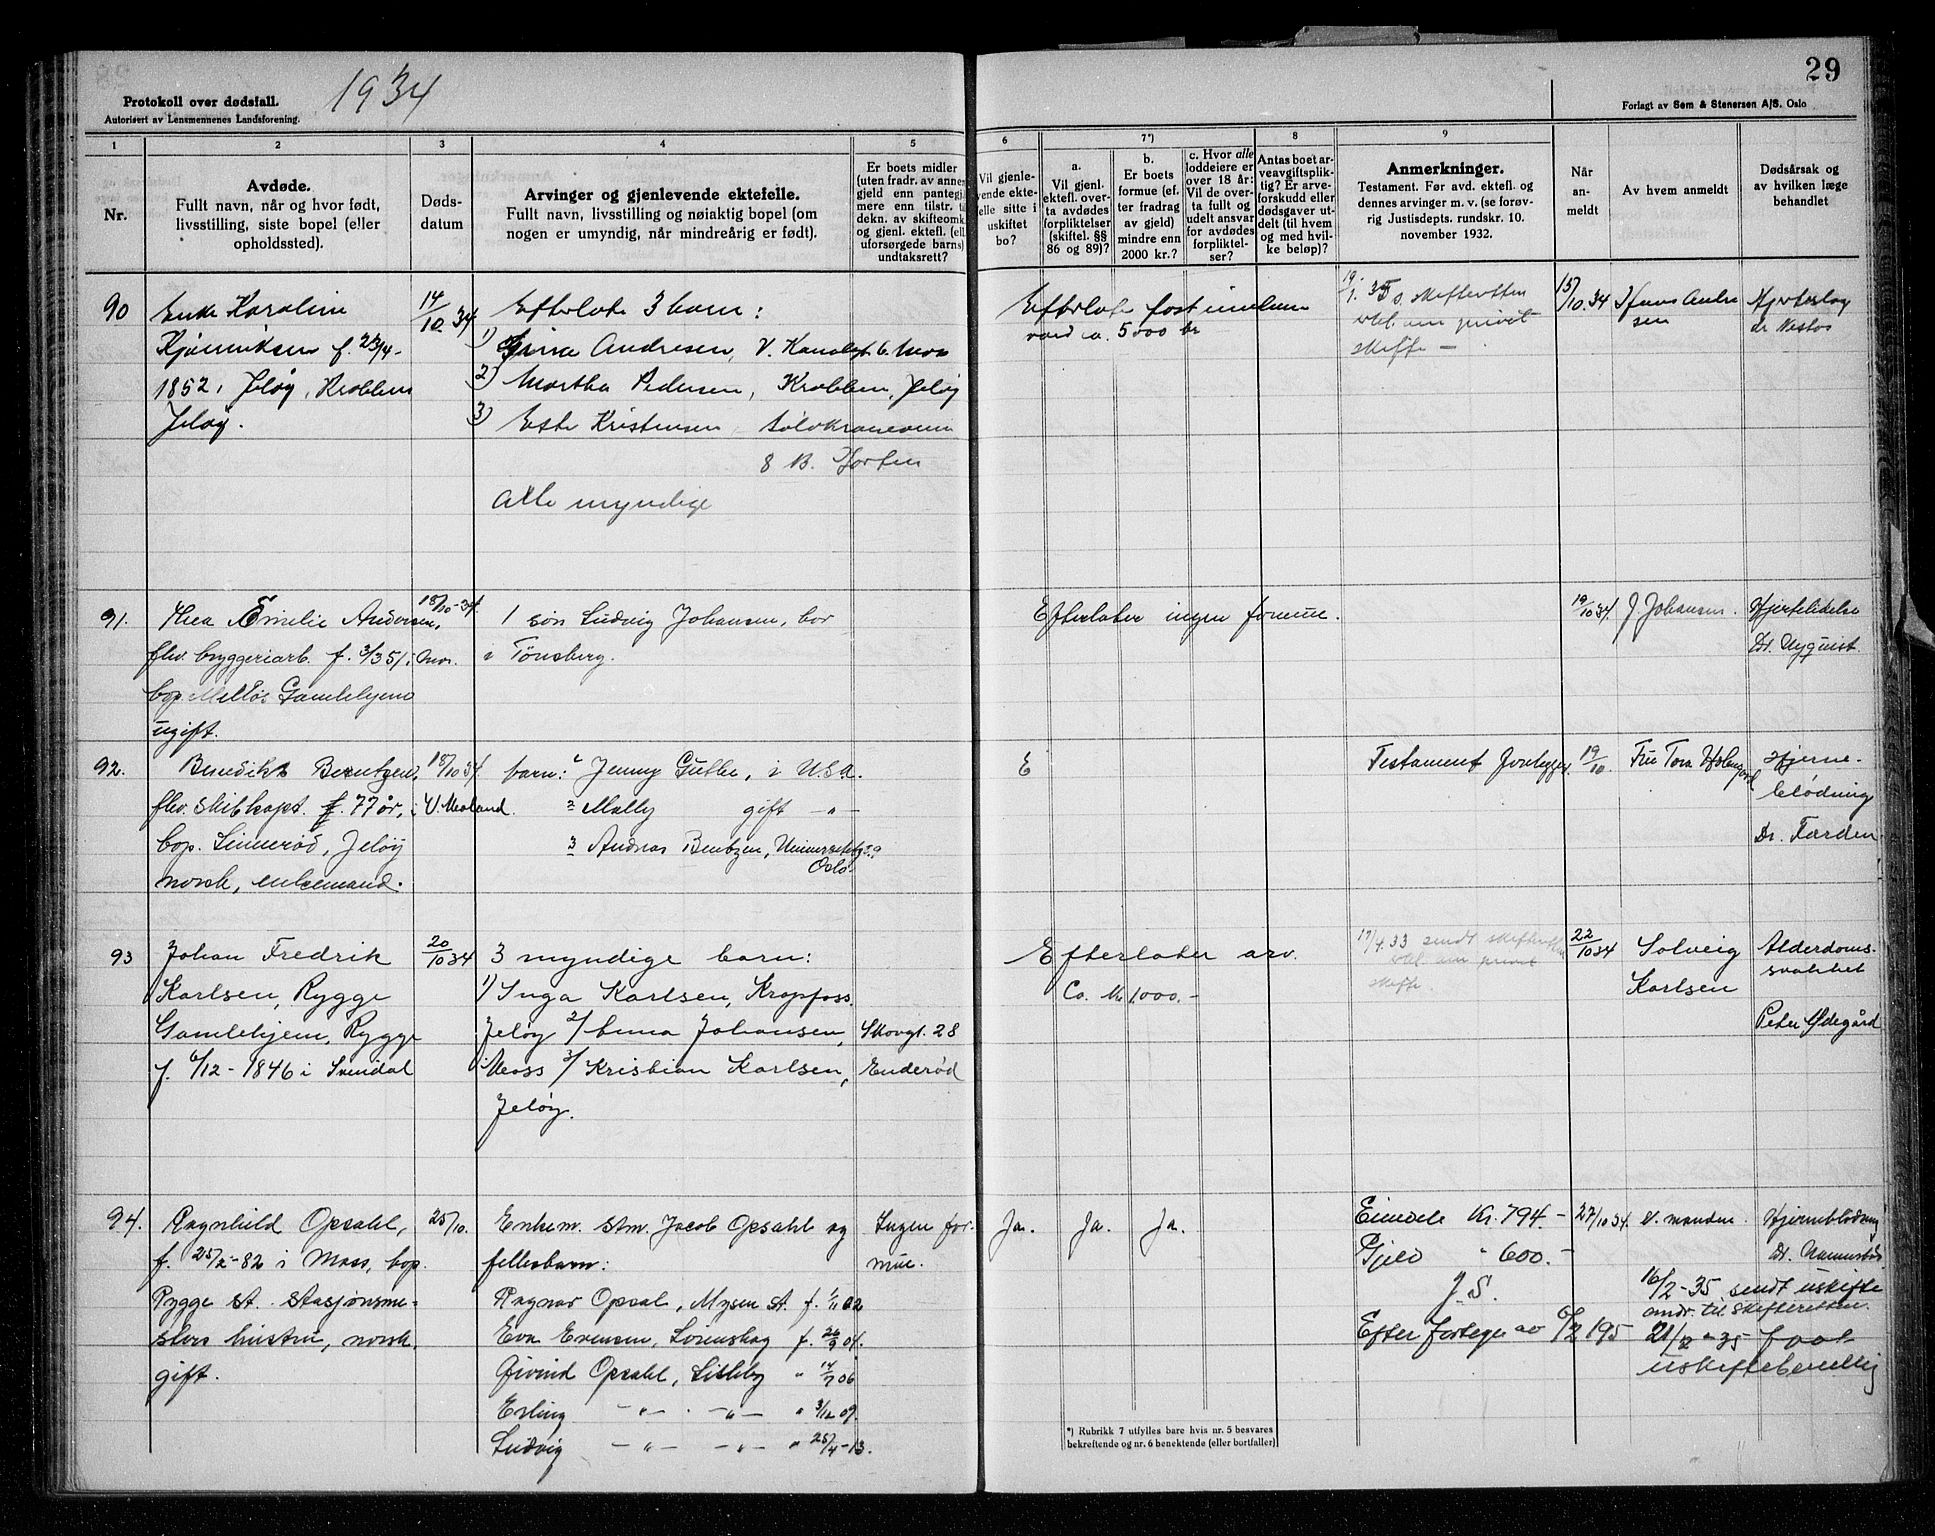 1934
29
Protokoll over dødsfall.
Autorisert av Lensmennenes Landsforening.
Forlagt av Sem & Stenersen A/S. Oslo
1 2 3 4 5 6 7*) 8 9
Nr.
Avdøde.
Fullt navn, når og hvor født,
livsstilling, siste bopel (eller
opholdssted).
Døds-
datum
Arvinger og gjenlevende ektefelle.
Fullt navn, livsstilling og nøiaktig bopel (om
nogen er umyndig, når mindreårig er født).
Er boets midler
(uten fradr. av annen
gjeld enn pantegj.
mere enn tilstr. ti
dekn. av skifteomk
og gjenl. ektef. (ell
uforsørgede barns)
undtaksrett?
Vil gjenle-
vende ekte-
elle sitte i
uskiftet
bo?
a.
Vil gjenl.
ektefl. over-
ta avdødes
forpliktelser
(skiftel. §§
86 og 89)?
b.
Er boets
formue (ef-
ter fradrag
av gjeld)
mindre enn
2000 kr.?
c. Hvor alle
loddeiere er
over 18 år:
Vil de over-
ta fullt og
udelt ansvar
for avdødes
forpliktel-
ser?
Antas boet ar-
veavgiftsplik-
tig? Er arve-
forskudd eller
dødsgaver ut-
delt (til hvem
og med hvil-
ke beløp)?
Anmerkninger.
Testament. Før avd. ektefl. og
dennes arvinger m. v. (se forøv-
rig Justisdepts. rundskr. 10.
november 1932.
Når
an-
meldt
Av hvem anmeldt
Dødsårsak og
av hvilken læge
behandlet
90
Enke Karoline
f. 23/4-
1852, Jeløy, Krobben
Jeløy.
14/10 34
Efterlate 3 barn:
1) Andresen, V. Kanalgt 6. Moss
2) Martha Pedersen, Krobben, Jeløy
3) Kristensen
8 B. Horten
Alle myndige
Efterlate fast eiendom
verd ca. 5000 kr
19/1. 35 s. skifteretten
vbl. om privat
skifte —
15/10. 34
Hans Andre
sen
Hjerteslag
91.
Thea Emelie Andersen,
fhv. bryggeriarb. f. 3/3 51 i Mor.
bop. Melløs Gamlehjem
ugift.
18/10-34.
1 søn Ludvig Johansen, bor
i Tønsberg.
Efterlater ingen formue.
19/10 34.
J. Johansen.
Hjertelidelse
Dr. Nyquist.
92.
Benedikt Berntzen,
fhv. skibskapt. f. 77 år, i V. Moland.
bop. Linnerød, Jeløy
norsk, enkemand.
18/10 34.
barn: 1 Jenny Guthe, i USA.
2 Mally gift — " —
3 Andreas Bentzen, Universitetsg 20
Oslo.
E
Testament foreligger.
19/10
Fru Tora
Hjerne-
blødning
Dr. Farden
93
Johan Fredrik
Karlsen, Rygge
Gamlehjem, Rygge
f. 6/12-1846 i Svindal
20/10 34
3 myndige barn:
1) Inga Karlsen, Kropfoss
Jeløy 2/ Anna Johansen, Skovgt. 28
Moss 3/ Kristian Karlsen, Enderød
Jeløy.
Efterlater arv.
Ca. Kr 1000.-
17/4.33 sendt skifteretten
vbl. om privat
skifte.
22/10 34
Solveig
Karlsen
Alderdoms-
svakhet
Peter Ødegård
94.
Ragnhild Opsahl,
f. 25/2-82 i Moss, bop.
Rygge st. stasjonsme-
sters hustru, norsk.
gift.
25/10.
Enkem. stm. Jacob Opsahl og
fellesbarn:
Ragnar Opsal, Mysen st. f. 1/11 02
Eva Evensen, Lørenskog f. 26/9 04.
Øivind Opsahl, Lisleby " 14/7 06
Erling — " — . — " — " 3/12 09.
Ludvig — " — — " — " 25/4-13.
Ingen for-
mue.
Ja. Ja. Ja.
Eiendele Kr. 794.-
Gjeld " 600.-
J.S.
Efter av 6/2 195
27/10 34.
v. manden.
Hjerneblødning
16/2-35 sendt uskifte
andr. til Skifteretten.
21/12-35 faat
uskiftebevilling
*) Rubrikk 7 utfylles bare hvis nr. 5 besvares
bekreftende og nr. 6 benektende (eller bortfaller)